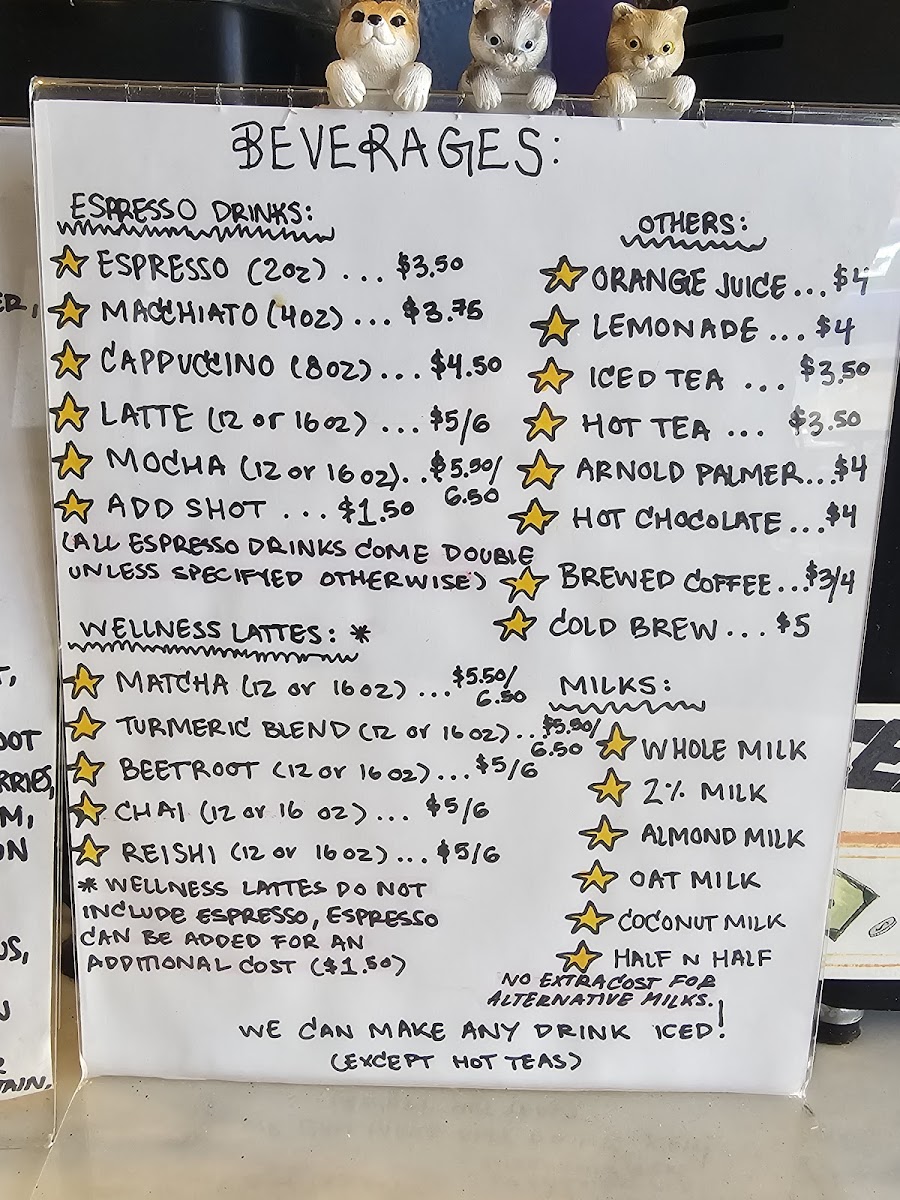 BEVERAGES:
ESPRESSO DRINKS:
ESPRESSO (2oz) ... $3.50
MACCHIATO (4oz) ... $3.75
CAPPUCCINO (8oz) ... $4.50
LATTE (12 or 16oz) ... $5/6
MOCHA (12 or 16oz) .. $5.50/
6.50
ADD SHOT ... $1.50
(ALL ESPRESSO DRINKS COME DOUBLE
UNLESS SPECIFYED OTHERWISE)
WELLNESS LATTES: *
MATCHA (12 or 16oz) ... $5.50/
6.50
TURMERIC BLEND (12 or 16oz) .. $5.50/
6.50
BEETROOT (12 or 16oz) ... $5/6
CHAI (12 or 16 oz) ... $5/6
REISHI (12 or 16oz) ... $5/6
* WELLNESS LATTES DO NOT
INCLUDE ESPRESSO, ESPRESSO
CAN BE ADDED FOR AN
ADDITIONAL COST ($1.50)
OTHERS:
ORANGE JUICE ... $4
LEMONADE ... $4
ICED TEA ... $3.50
HOT TEA ... $3.50
ARNOLD PALMER ... $4
HOT CHOCOLATE ... $4
BREWED COFFEE ... $3/4
COLD BREW ... $5
MILKS:
WHOLE MILK
2% MILK
ALMOND MILK
OAT MILK
COCONUT MILK
HALF N HALF
NO EXTRA COST FOR
ALTERNATIVE MILKS.!
WE CAN MAKE ANY DRINK ICED!
(EXCEPT HOT TEAS)